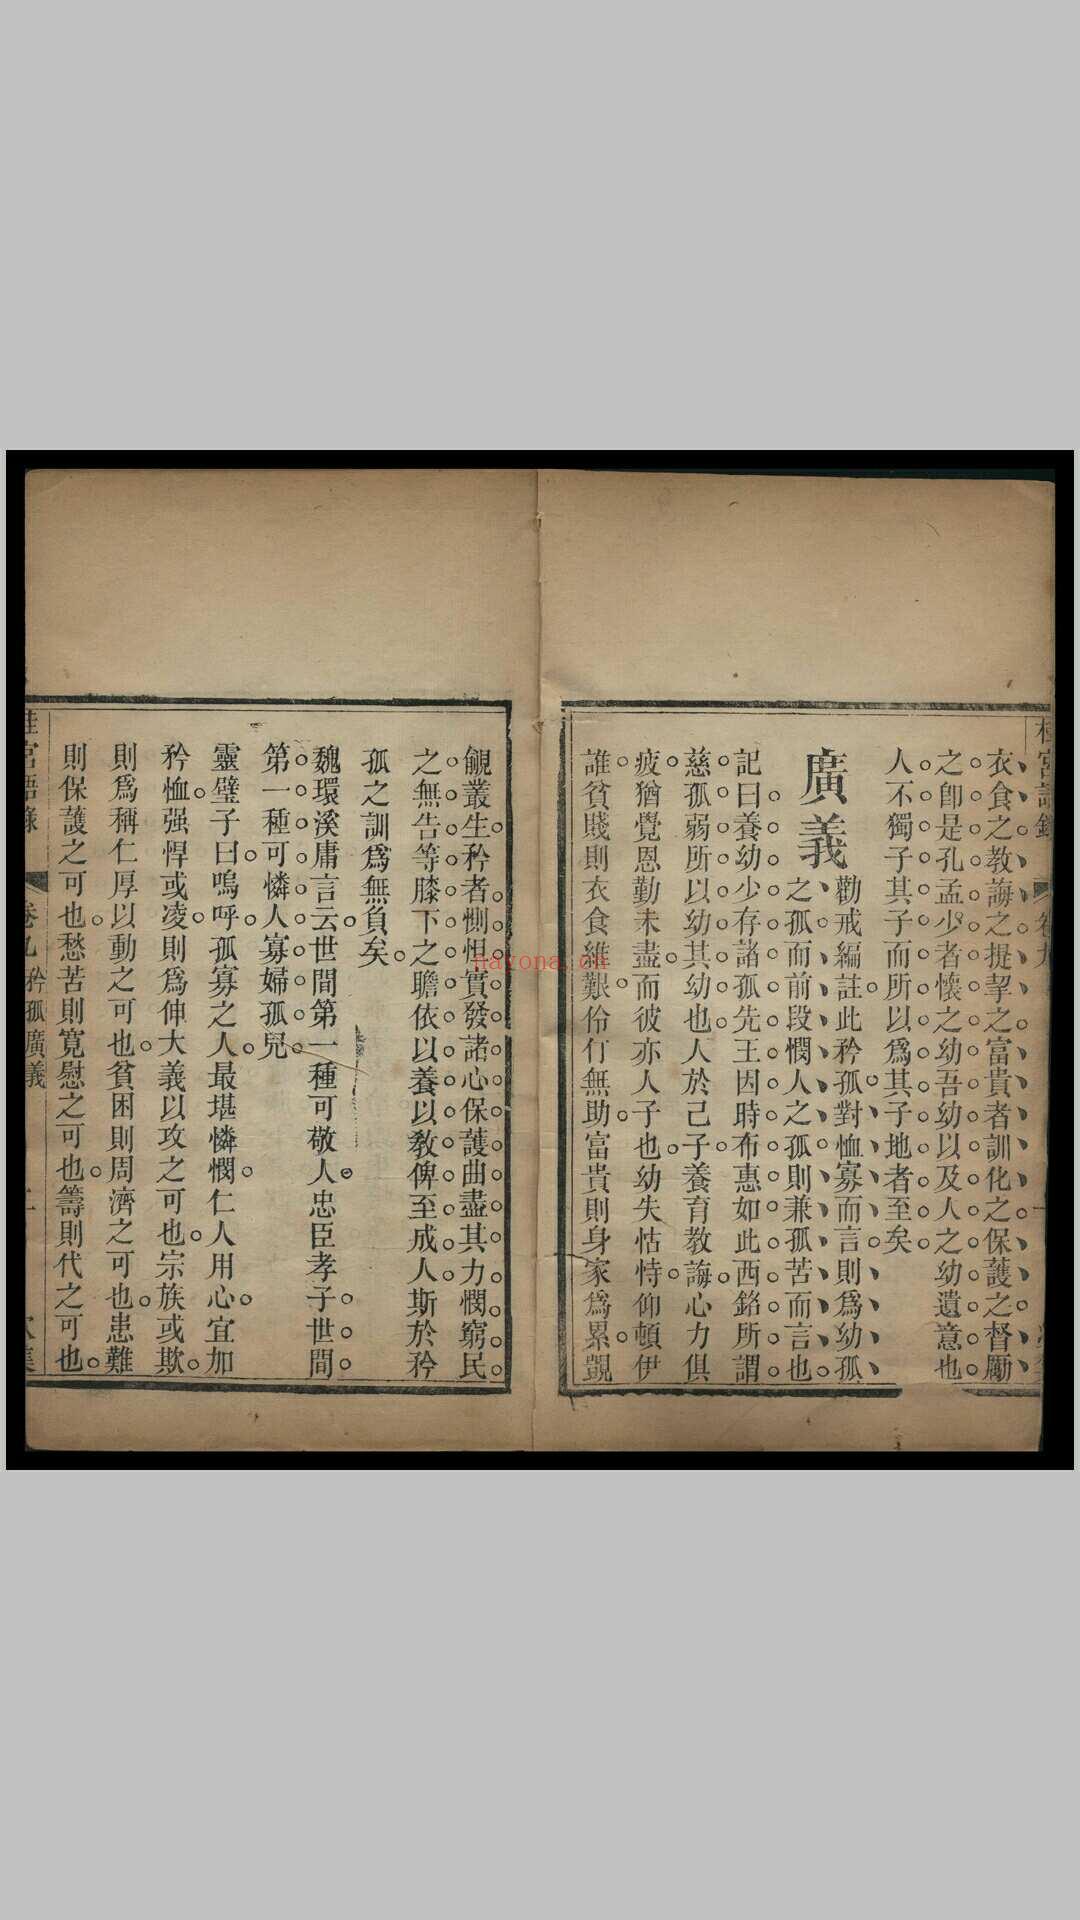 衣食之教誨之提挈之富貴者訓化之保護之督勵
之卽是孔孟少者懷之幼吾幼以及人之幼遺意也
人不獨子其子而所以爲其子地者至矣
廣義
勸戒編註此矜孤對恤寡而言則爲幼孤
之孤而前段憫人之孤則兼孤苦而言也
記曰養幼少存諸孤先王因時布惠如此西銘所謂
慈孤弱所以幼其幼也人於己子養育教誨心力俱
疲猶覺恩勤未盡而彼亦人子也幼失怙恃仰頓伊
誰貧賤則衣食維艱伶仃無助富貴則身家爲累覬
覦叢生矜者惻怛實發諸心保護曲盡其力憫窮民
之無告等膝下之瞻依以養以教俾至成人斯於矜
孤之訓爲無負矣
魏環溪庸言云世間第一種可敬人忠臣孝子世間
第一種可憐人寡婦孤兒
靈璧子曰嗚呼孤寡之人最堪憐憫仁人用心宜加
矜恤强悍或凌則爲伸大義以攻之可也宗族或欺
則爲稱仁厚以動之可也貧困則周濟之可也患難
則保護之可也愁苦則寬慰之可也籌則代之可也
卷九 矜孤廣義
nayona.cn